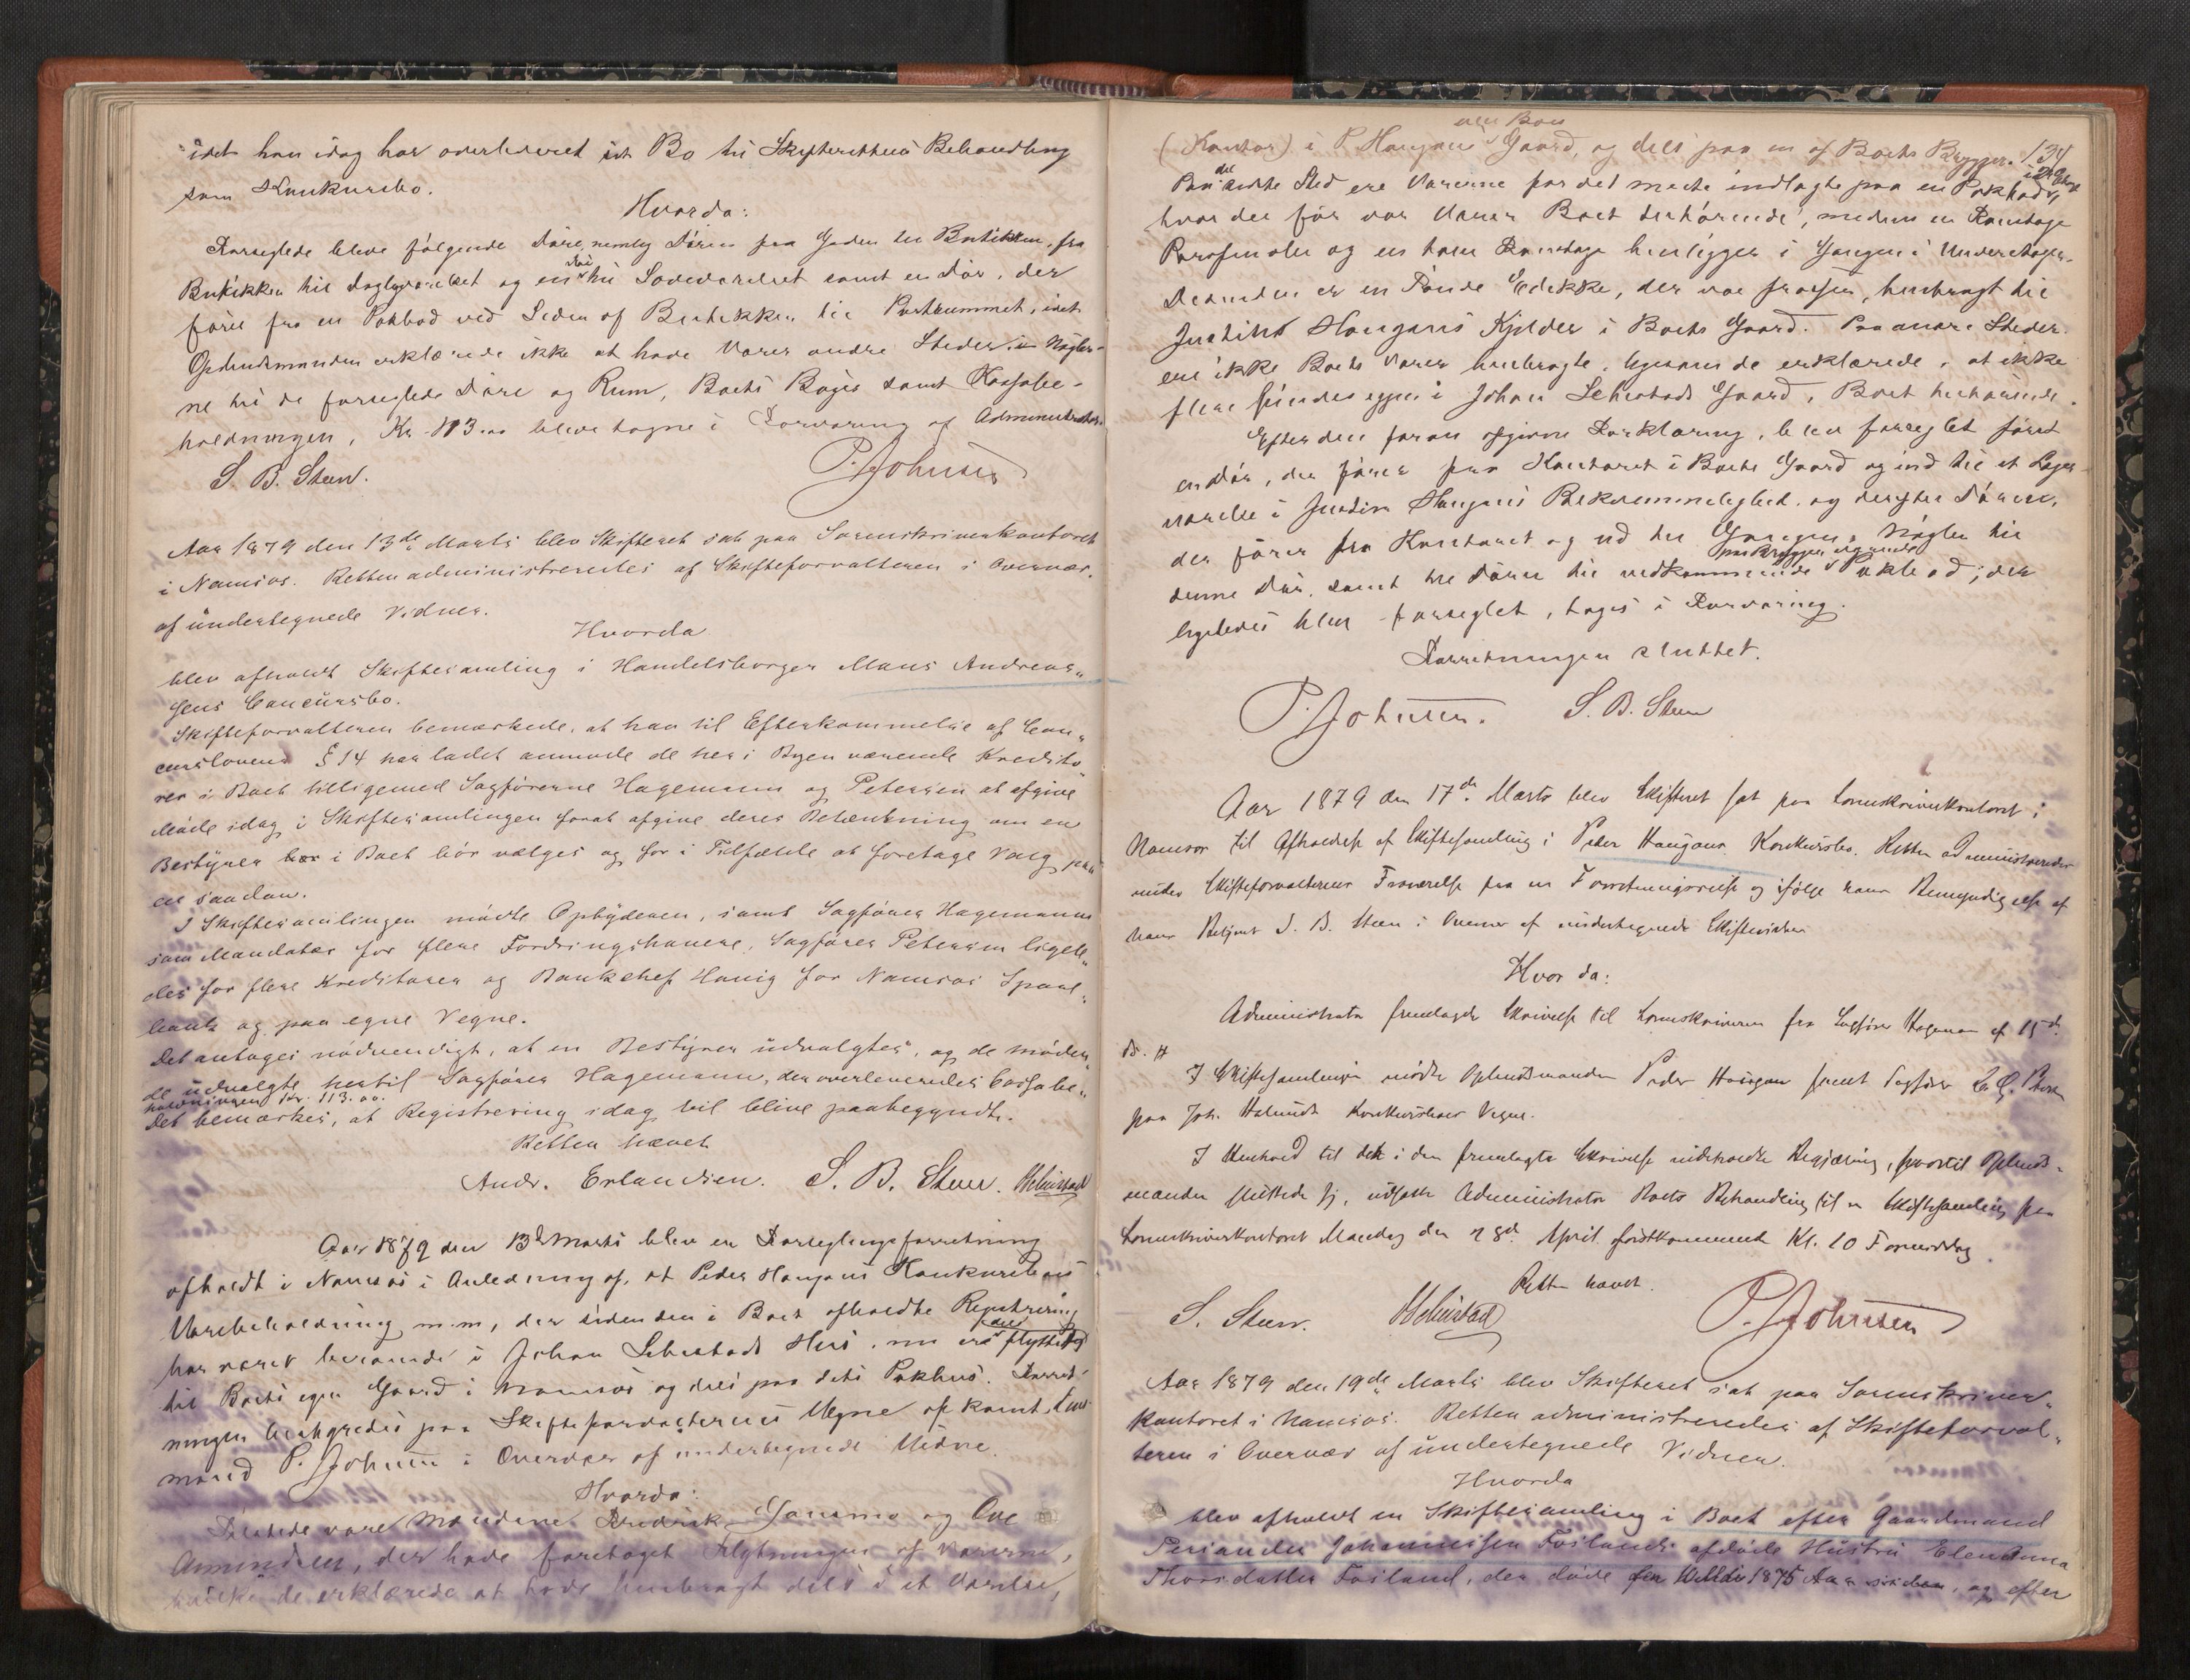 idet han idag har overleveret sit Bo til Skifterettens Behandling
som Konkursbo.
Hvorda:
Forseglede bleve følgende Døre, nemlig Døren fra Gaden til Butikken, fra
Butikken til Dagligværelset og en Dør til Soveværelset samt en Dør, der
fører fra en Pakbod ved Siden af Butikken til Portrummet, idet
Opbudsmanden erklærede ikke at have Varer andre Steder. Nøgler-
ne til de forseglede Døre og Rum, Boets Bøger samt Kassabe-
holdningen, Kr. 113.00 bleve tagne i Forvaring af Administrator.
S. B. Steen. P. Johnsen
Aar 1879 den 13de Marts blev Skifteret sat paa Sorenskriverkontoret
i Namsos. Retten administreredes af Skifteforvalteren i Overvær
af undertegnede Vidner.
Hvorda
blev afholdt Skiftesamling i Handelsborger Mans Andreas-
sens Concursbo.
Skifteforvalteren bemærkede, at han til Efterkommelse af Con-
curslovens § 14 har ladet anmode de her i Byen værende Kredito-
rer i Boet tilligemed Sagførerne Hagemann og Petersen at afgive
Møde idag i Skiftesamlingen forat afgive deres Betænkning om en
Bestyrer bør i Boet bør vælges og for i Tilfælde at foretage Valg paa
en saadan.
I Skiftesamlingen mødte Opbyderen, samt Sagfører Hagemann
som Mandatar for flere Fordringshavere, Sagfører Petersen ligele-
des for flere Kreditorer og Bankchef Hanig for Namsos Spare-
bank og paa egne Vegne.
Det antoges nødvendigt, at en Bestyrer udvalgtes, og de møden-
de udvalgte hertil Sagfører Hagemann, der overleveredes Cassabe-
holdningen Kr. 113.00.
Det bemærkes, at Registrering idag vil blive paabegyndt.
Retten hævet
Andr. Erlandsen. S. B. Steen.
Aar 1879 den 13de Marts blev en Forseglingsforretning
afholdt i Namsos i Anledning af, at Peder Haugans Konkursboes
Varebeholdning m.m., der siden den i Boet afholdte Registrering
har været beroende i Johan Sehestads Hus, nu er flyttet
til Boets egen Gaard i Namsos og dels paa dets Pakhus. Forret-
ningen besørgedes paa Skifteforvalterens Vegne af konst. Lens-
mand P. Johnsen i Overvær af undertegnede Vidne.
Hvorda:
Tilstede vare Mændene Fredrik Jansmo og Ove
Amundsen, der havde foretaget Flytningen af Varerne,
hvilke de erklærede at have henbragt dels i et Værelse,
134
(Kontor) i P. Haugans Gaard, og dels paa en af Boets Brygger.
Paa det andet Sted ere Varerne for det meste indlagte paa en Pakbod,
hvor der før var Varer Boet tilhørende, medens en Kornstage
Parafinolie og en halv Kornstage henligger i Gangen i Underetagen.
Desuden er en Tønde Eddikke, der var frossen, henbragt til
Justine Haugans Kjelder i Boets Gaard. Paa andre Steder
ere ikke Boets Varer henbragte, ligesom de erklærede, at ikke
flere findes igjen i Johan Sehestads Gaard, Boet tilhørende.
Efter den foran afgivne Forklaring, blev forseglet først
en Dør, der fører fra Kontoret i Boets Gaard og ind til et Lager-
værelse i Justine Haugans Bekvemmelighed, og dernæst Døren,
der fører fra Kontoret og ud til Gangen. Nøglen til
denne Dør, samt til Døren til vedkommende Pakbod, der
ligeledes blev forseglet, toges i Forvaring.
Forretningen sluttet.
P. Johnsen. S. B. Steen
Aar 1879 den 17de Marts blev Skifteret sat paa Sorenskriverkontoret i
Namsos til Afholdelse af Skiftesamling i Peder Haugans Konkursbo. Retten administreredes
under Skifteforvalterens Fraværelse paa en Forretningsreise og ifølge hans Bemyndigelse af
hans Betjent S. B. Steen i Overvær af undertegnede Skiftevidner
Hvor da:
Administrator fremlagde Skrivelse til Sorenskriveren fra Sagfører Hagemann af 15de
D. H
I Skiftesamlingen mødte Opbudsmanden Peder Haugan samt Sagfører
paa Joh. Konkursboes Vegne.
I Henhold til den i den fremlagte Skrivelse indeholdte Begjæring, hvortil Opbuds-
manden sluttede sig, udsatte Administrator Boets Behandling til en Skiftesamling paa
Sorenskriverkontoret Mandag den 28de April førstkommende Kl. 10 Formiddag.
Retten hævet.
S. Steen. P. Johnsen
Aar 1879 den 19de Marts blev Skifteret sat paa Sorenskriver-
kontoret i Namsos. Retten administreredes af Skifteforval-
teren i Overvær af undertegnede Vidner.
Hvorda
blev afholdt en Skiftesamling i Boet efter Gaardmand
Periander Johannessen Fosland afdøde Hustru Elen Anna
Thorsdatter Fosland, der døde 1875, og efter